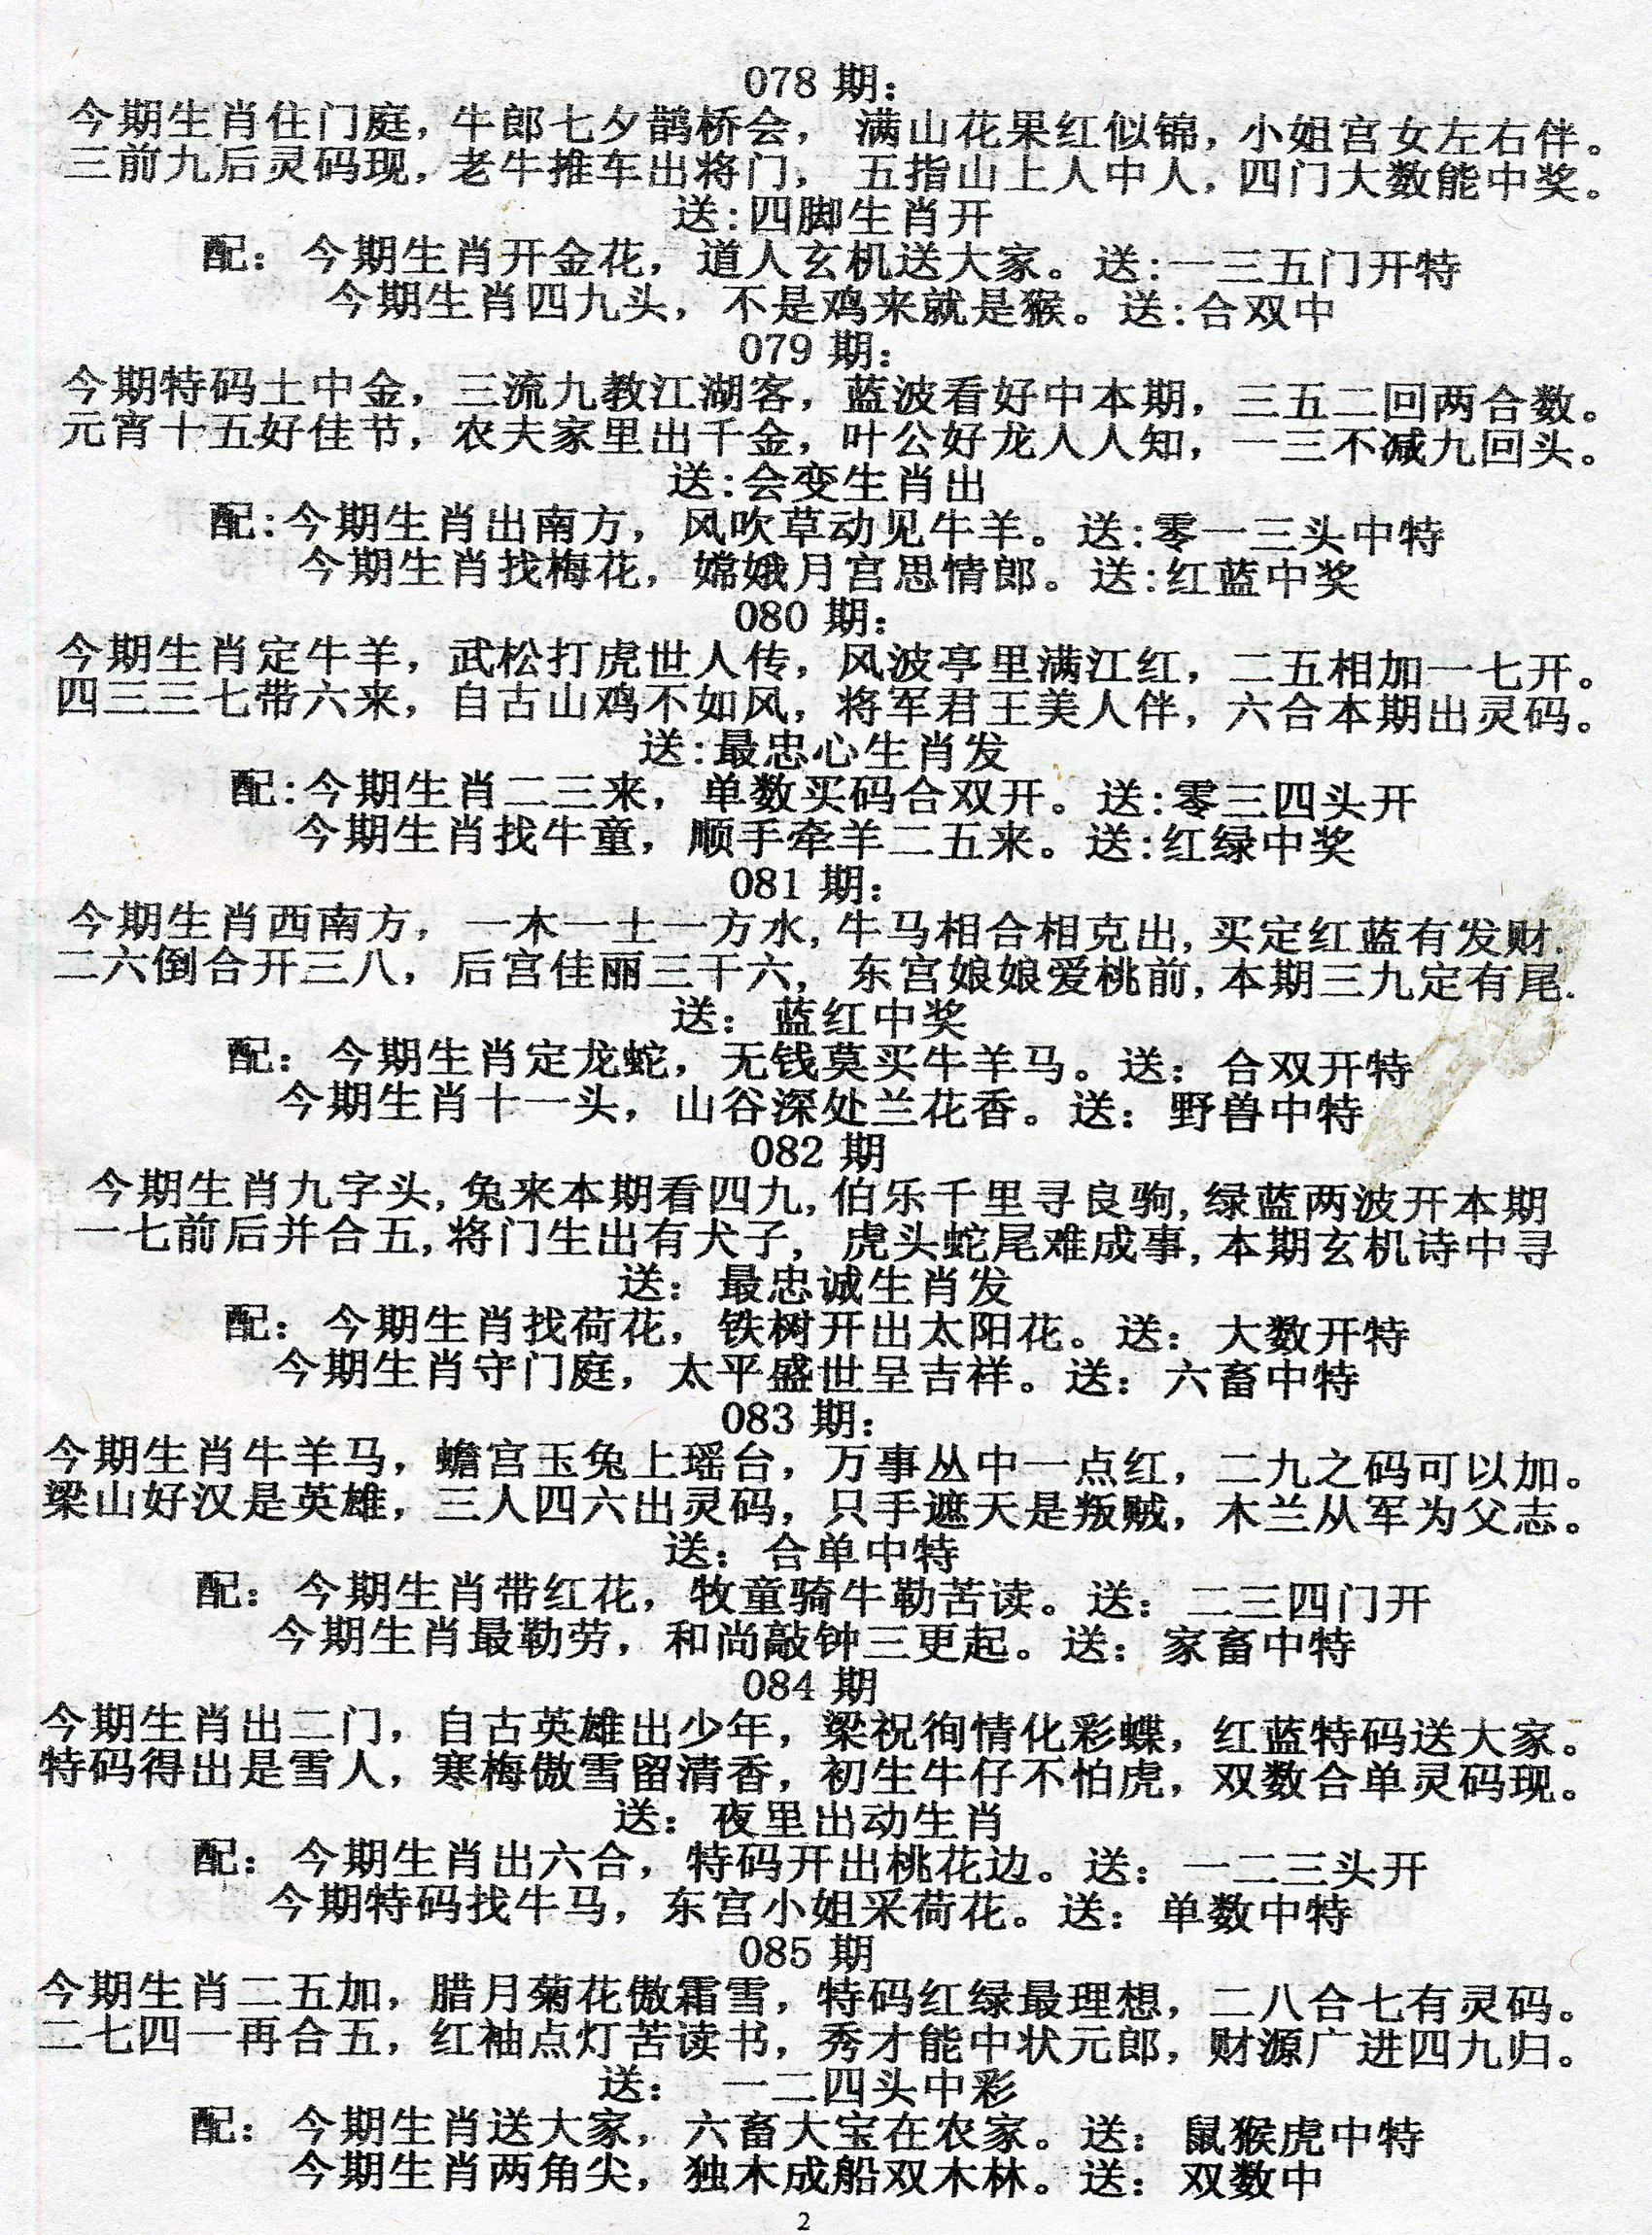 078 期：
今期生肖住门庭，牛郎七夕鹊桥会， 满山花果红似锦，小姐宫女左右伴。
三前九后灵码现，老牛推车出将门， 五指山上人中人，四门大数能中奖。
送:四脚生肖开
配：今期生肖开金花，道人玄机送大家。送:一三五门开特
今期生肖四九头，不是鸡来就是猴。送:合双中
079 期：
今期特码土中金，三流九教江湖客，蓝波看好中本期，三五二回两合数。
元宵十五好佳节，农夫家里出千金，叶公好龙人人知，一三不减九回头。
送:会变生肖出
配:今期生肖出南方，风吹草动见牛羊。送:零一三头中特
今期生肖找梅花，嫦娥月宫思情郎。送:红蓝中奖
080 期：
今期生肖定牛羊，武松打虎世人传，风波亭里满江红，二五相加一七开。
四三三七带六来，自古山鸡不如风，将军君王美人伴，六合本期出灵码。
送:最忠心生肖发
配:今期生肖二三来，单数买码合双开。送:零三四头开
今期生肖找牛童，顺手牵羊二五来。送:红绿中奖
081 期：
今期生肖西南方，一木一土一方水,牛马相合相克出,买定红蓝有发财.
二六倒合开三八，后宫佳丽三千六， 东宫娘娘爱桃前,本期三九定有尾.
送： 蓝红中奖
配：今期生肖定龙蛇，无钱莫买牛羊马。送： 合双开特
今期生肖十一头，山谷深处兰花香。送： 野兽中特
082 期
今期生肖九字头,兔来本期看四九,伯乐千里寻良驹,绿蓝两波开本期
一七前后并合五,将门生出有犬子, 虎头蛇尾难成事,本期玄机诗中寻
送： 最忠诚生肖发
配：今期生肖找荷花，铁树开出太阳花。送： 大数开特
今期生肖守门庭，太平盛世呈吉祥。送： 六畜中特
083 期：
今期生肖牛羊马，蟾宫玉兔上瑶台，万事丛中一点红，二九之码可以加。
梁山好汉是英雄，三人四六出灵码，只手遮天是叛贼，木兰从军为父志。
送： 合单中特
配：今期生肖带红花，牧童骑牛勒苦读。送： 二三四门开
今期生肖最勒劳，和尚敲钟三更起。送： 家畜中特
084 期
今期生肖出二门，自古英雄出少年，梁祝徇情化彩蝶，红蓝特码送大家。
特码得出是雪人，寒梅傲雪留清香，初生牛仔不怕虎，双数合单灵码现。
送： 夜里出动生肖
配：今期生肖出六合，特码开出桃花边。送： 一二三头开
今期特码找牛马，东宫小姐采荷花。送： 单数中特
085 期
今期生肖二五加，腊月菊花傲霜雪，特码红绿最理想，二八合七有灵码。
二七四一再合五，红袖点灯苦读书，秀才能中状元郎，财源广进四九归。
送： 一二四头中彩
配：今期生肖送大家，六畜大宝在农家。送： 鼠猴虎中特
今期生肖两角尖，独木成船双木林。送： 双数中
2